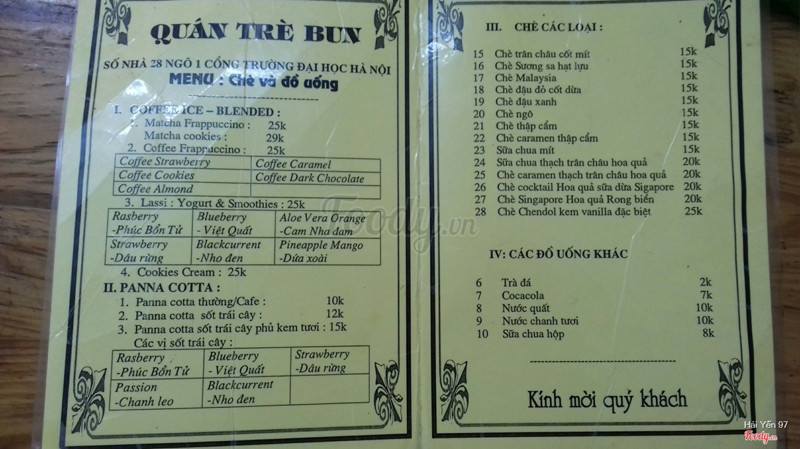 QUÁN TRÈ BUN
SỐ NHÀ 28 NGÕ 1 CỔNG TRƯỜNG ĐẠI HỌC HÀ NỘI
MENU : Chè và đồ uống
I. COFFEE ICE – BLENDED :
1. Matcha Frappuccino : 25k
Matcha cookies : 29k
2. Coffee Frappucino : 25k
Coffee Strawberry Coffee Caramel
Coffee Cookies Coffee Dark Chocolate
Coffee Almond
3. Lassi : Yogurt & Smoothies : 25k
Rasberry Blueberry Aloe Vera Orange
-Phúc Bồn Tử -Việt Quất -Cam Nha đam
Strawberry Blackcurrent Pineapple Mango
-Dâu rừng -Nho đen -Dứa xoài
4. Cookies Cream : 25k
II. PANNA COTTA :
1. Panna cotta thường/Cafe : 10k
2. Panna cotta sốt trái cây : 12k
3. Panna cotta sốt trái cây phủ kem tươi : 15k
Các vị sốt trái cây :
Rasberry Blueberry Strawberry
-Phúc Bồn Tử -Việt Quất -Dâu rừng
Passion Blackcurrent
-Chanh leo -Nho đen
III. CHÈ CÁC LOẠI :
15 Chè trân châu cốt mít 15k
16 Chè Sương sa hạt lựu 15k
17 Chè Malaysia 15k
18 Chè đậu đỏ cốt dừa 15k
19 Chè đậu xanh 15k
20 Chè ngô 15k
21 Chè thập cẩm 15k
22 Chè caramen thập cẩm 15k
23 Sữa chua mít 15k
24 Sữa chua thạch trân châu hoa quả 20k
25 Chè caramen thạch trân châu hoa quả 20k
26 Chè cocktail Hoa quả sữa dừa Sigapore 20k
27 Chè Singapore Hoa quả Rong biển 20k
28 Chè Chendol kem vanilla đặc biệt 25k
IV: CÁC ĐỒ UỐNG KHÁC
6 Trà đá 2k
7 Cocacola 7k
8 Nước quất 10k
9 Nước chanh tươi 10k
10 Sữa chua hộp 8k
Kính mời quý khách
Foody.vn
Hải Yến 97
Foody.vn